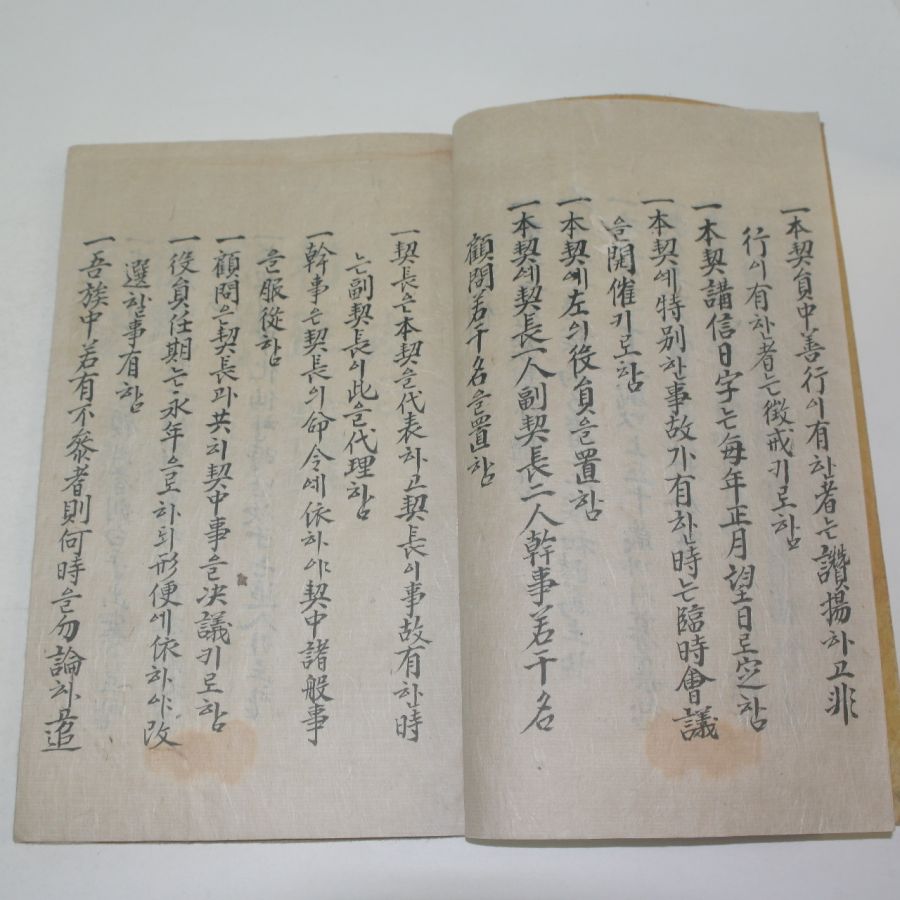 一本契員中善行이有한者는讚揚하고非
行이有한者는徵戒키로함
一本契講信日字는每年正月望日로定함
一本契에特別한事故가有한時는臨時會議
을開催키로함
一本契에左의役員을置함
一本契에契長一人副契長二人幹事若干名
顧問若干名을置함
一契長은本契을代表하고契長이事故有한時
는副契長이此을代理함
一幹事은契長의命令에依하야契中諸般事
을服從함
一顧問은契長과共히契中事을决議키로함
一役員任期는永年으로하되形便에依하야改
選할事有함
一吾族中若有不參者則何時을勿論하고追